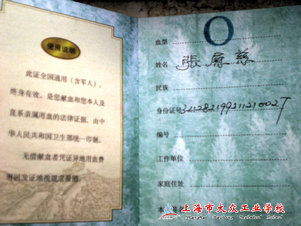 使用说明
此证全国通用（含军人），
终身有效。是您献血和您本人及
直系亲属用血的法律证据。由中
华人民共和国卫生部统一印制。
无偿献血者凭证异地用血费
用到发证地按规定报销
O
血型
姓名
民族
身份证号
编号
工作单位
家庭住址
上海市大众工业学校